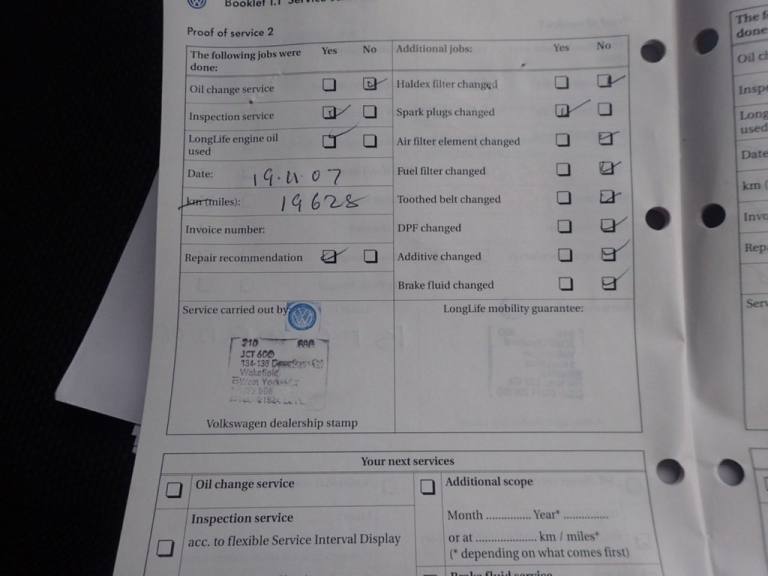 Booklet 1.1
Proof of service 2
The following jobs were done: Yes No Additional jobs: Yes No
Oil change service Haldex filter changed
Inspection service Spark plugs changed
LongLife engine oil used Air filter element changed
Date: 19.11.07 Fuel filter changed
km (miles): 19628 Toothed belt changed
Invoice number: DPF changed
Repair recommendation Additive changed
Brake fluid changed
Service carried out by: LongLife mobility guarantee:
210
JCT 600
Wakefield
Volkswagen dealership stamp
Your next services
Oil change service Additional scope
Inspection service Month ............... Year* ...............
acc. to flexible Service Interval Display or at .................... km / miles*
(* depending on what comes first)
The
done
Oil
Insp
Long
used
Date
km (
Invo
Rep
Serv